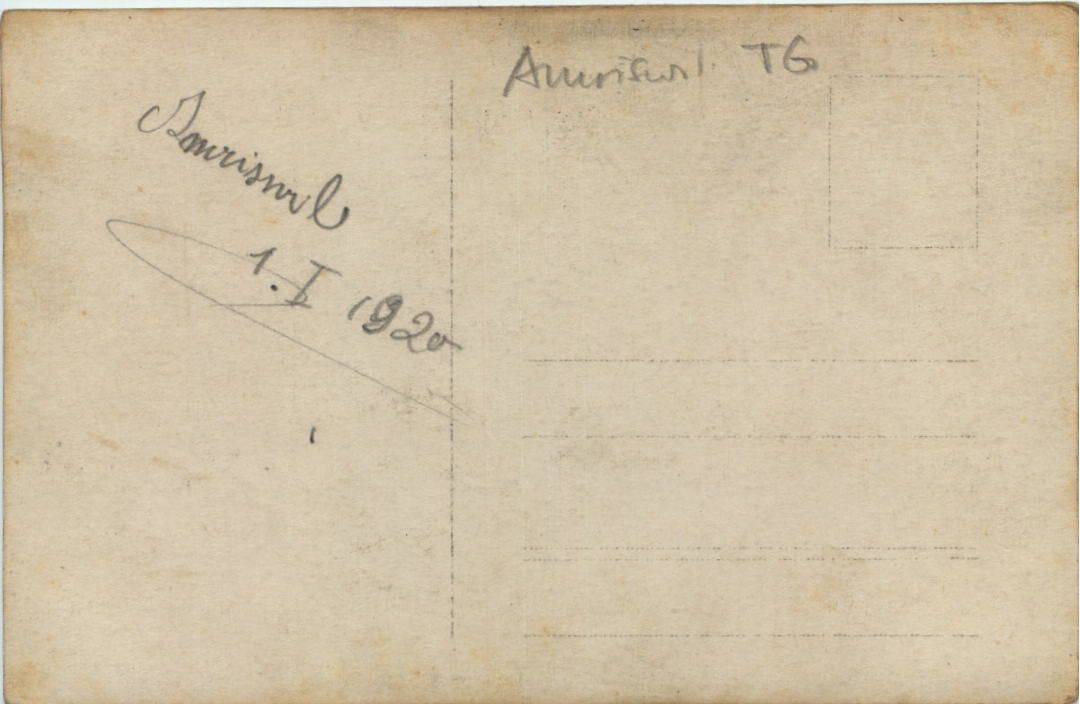 Amriswil
1. I 1920
Amriswil TG